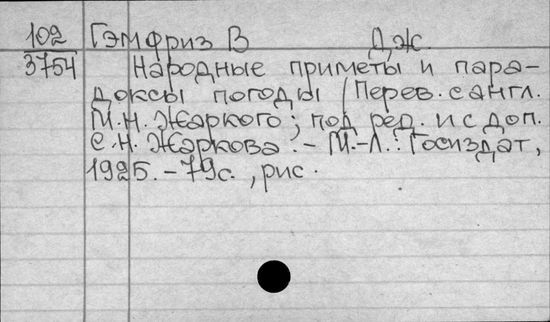 102 Гэмфриз В Дж.
3754 Народные приметы и пара-
доксы погоды / Перев. с англ.
М.Н. Жаркого; под ред. и с доп.
С.Н. Жаркова. - М.-Л.: Госиздат,
1925. - 79с., рис.